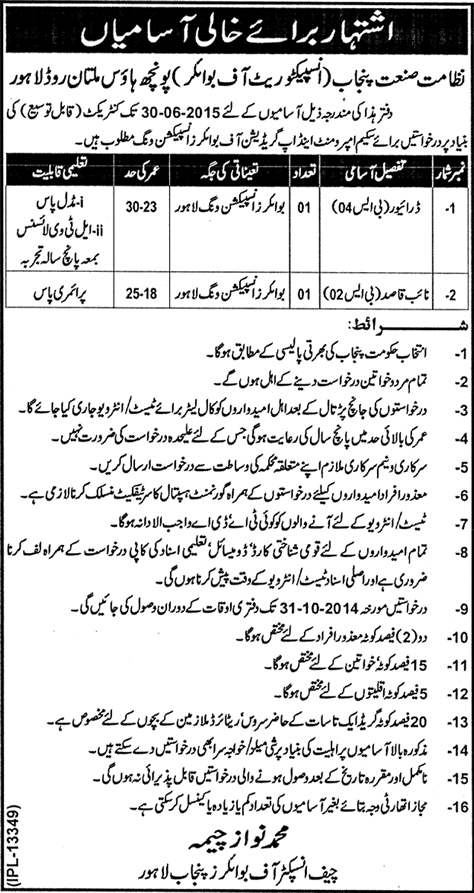 اشتہار برائے خالی آسامیاں
نظامت صنعت پنجاب (انسپکٹوریٹ آف بوائلرز) پونچھ ہاؤس ملتان روڈ لاہور
دفتر ہذا کی مندرجہ ذیل آسامیوں کے لئے 30-06-2015 تک کنٹریکٹ (قابل توسیع) کی
بنیاد پر درخواستیں برائے سکیم امپرومنٹ اینڈ اپ گریڈیشن آف بوائلرز انسپکشن ونگ مطلوب ہیں۔
نمبر شمار تفصیل آسامی تعداد تعیناتی کی جگہ عمر کی حد تعلیمی قابلیت
1- ڈرائیور (بی ایس 04) 01 بوائلرز انسپکشن ونگ لاہور 30-23 i- مڈل پاس
ii- ایل ٹی وی لائسنس
بمعہ پانچ سالہ تجربہ
2- نائب قاصد (بی ایس 02) 01 بوائلرز انسپکشن ونگ لاہور 25-18 پرائمری پاس
شرائط:
1- انتخاب حکومت پنجاب کی بھرتی پالیسی کے مطابق ہوگا۔
2- تمام مرد و خواتین درخواست دینے کے اہل ہوں گے۔
3- درخواستوں کی جانچ پڑتال کے بعد اہل امیدواروں کو کال لیٹر برائے ٹیسٹ/انٹرویو جاری کیا جائے گا۔
4- عمر کی بالائی حد میں پانچ سال کی رعایت ہوگی جس کے لئے علیحدہ درخواست کی ضرورت نہیں۔
5- سرکاری و نیم سرکاری ملازم اپنے متعلقہ محکمہ کی وساطت سے درخواست ارسال کریں۔
6- معذور افراد امیدواروں کیلئے درخواستوں کے ہمراہ گورنمنٹ ہسپتال کا سرٹیفکیٹ منسلک کرنا لازمی ہے۔
7- ٹیسٹ/انٹرویو کے لئے آنے والوں کو کوئی ٹی اے/ڈی اے واجب الادا نہ ہوگا۔
8- تمام امیدواروں کے لئے قومی شناختی کارڈ، ڈومیسائل، تعلیمی اسناد کی کاپی درخواست کے ہمراہ لف کرنا
ضروری ہے اور اصلی اسناد ٹیسٹ/انٹرویو کے وقت پیش کرنا ہوں گی۔
9- درخواستیں مورخہ 31-10-2014 تک دفتری اوقات کے دوران وصول کی جائیں گی۔
10- دو (2) فیصد کوٹہ معذور افراد کے لئے مختص ہوگا۔
11- 15 فیصد کوٹہ خواتین کے لئے مختص ہوگا۔
12- 5 فیصد کوٹہ اقلیتوں کے لئے مختص ہوگا۔
13- 20 فیصد کوٹہ گریڈ ایک تا سات کے حاضر سروس/ریٹائرڈ ملازمین کے بچوں کے لئے مخصوص ہے۔
14- مذکورہ بالا آسامیوں پر اہلیت کی بنیاد پر شی میلز/خواجہ سرا بھی درخواستیں دے سکتے ہیں۔
15- نامکمل اور مقررہ تاریخ کے بعد وصول ہونے والی درخواستیں قابل پذیرائی نہ ہوں گی۔
16- مجاز اتھارٹی وجہ بتائے بغیر آسامیوں کی تعداد کم یا زیادہ یا کینسل کر سکتی ہے۔
محمد نواز چیمہ
چیف انسپکٹر آف بوائلرز پنجاب لاہور
(IPL-13349)